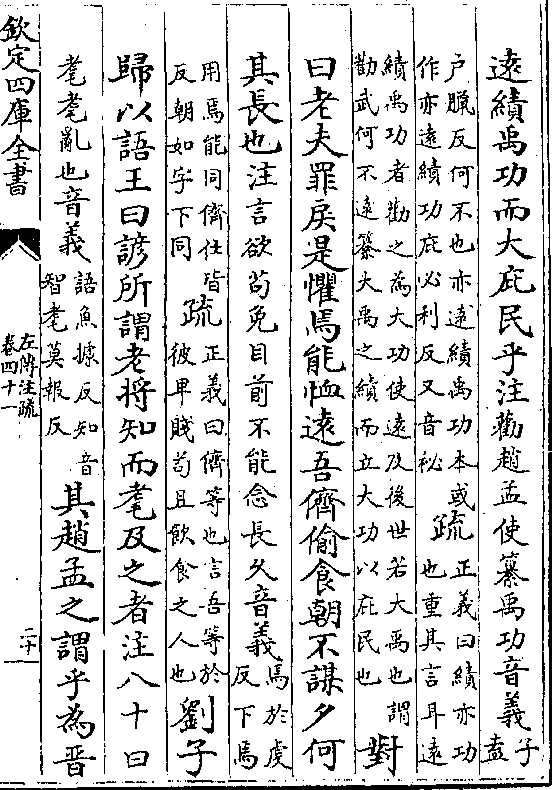 遠績禹功而大庇民乎注勸趙孟使纂禹功音義子盍
户臘反何不也亦遠績禹功本或作亦遠績功庇必利反又音祕疏正義曰績亦功也重其言耳遠
績禹功者勸之為大功使遠及後世若大禹也謂勸武何不遠纂大禹之績而立大功以庇民也對
曰老夫罪戾是懼焉能恤遠吾儕偷食朝不謀夕何
其長也注言欲苟免目前不能念長久音義焉於虔反下焉
用焉能同儕仕皆反朝如字下同疏正義曰儕等也言吾等於彼卑賤苟且飲食之人也劉子
歸以語王曰諺所謂老將知而耄及之者注八十曰
耄耄亂也音義語魚據反知音智耄莫報反其趙孟之謂乎為晉
欽定四庫全書
左傳注疏
卷四十一
二十一